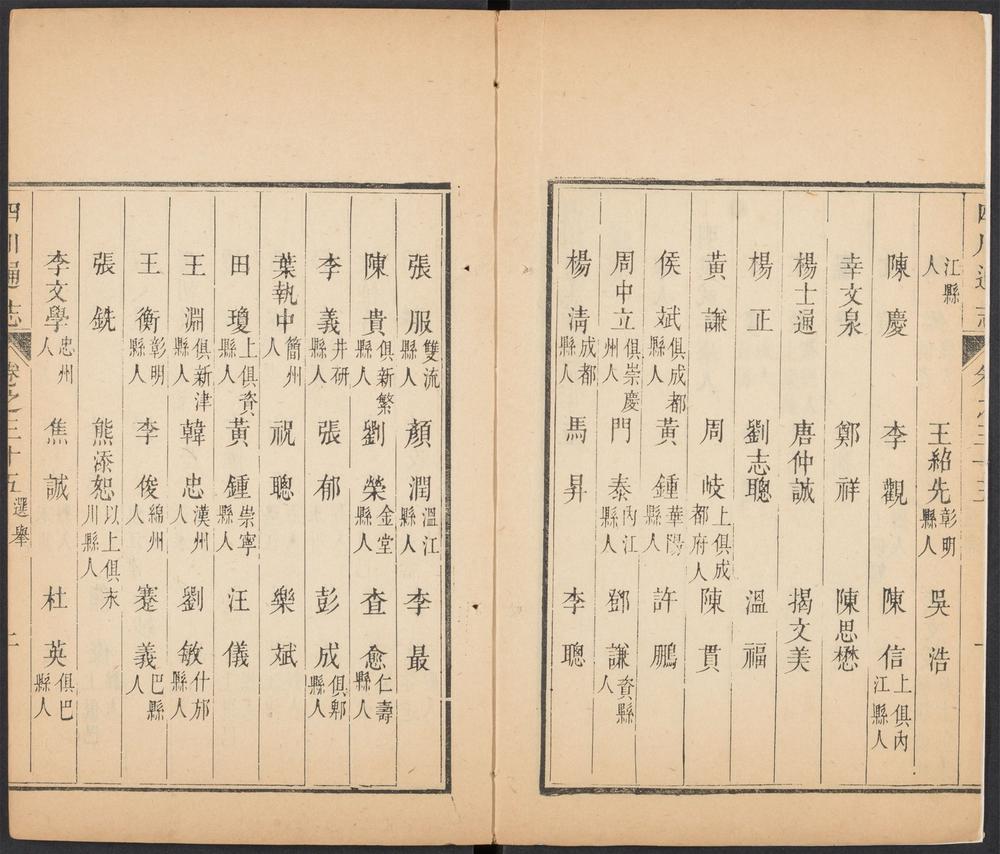 江縣人　王紹先彰明縣人　吳浩
陳慶　李觀　陳信上俱內江縣人
幸文泉　鄭祥　陳思懋
楊士通　唐仲誠　揭文美
楊正　劉志聰　溫福
黃謙　周岐上俱成都府人　陳貫
侯斌俱成都縣人　黃鍾華陽縣人　許鵬
周中立俱崇慶州人　門泰內江縣人　鄧謙資縣人
楊清成都縣人　馬昇　李聰
張服雙流縣人　顏潤溫江縣人　李最
陳貴俱新繁縣人　劉榮金堂縣人　查愈仁壽縣人
李義井研縣人　張郁　彭成俱郫縣人
葉執中簡州人　祝聰　樂斌
田瓊上俱資縣人　黃鍾崇寧縣人　汪儀
王淵俱新津縣人　韓忠漢州人　劉敏什邡縣人
王衡彰明縣人　李俊綿州人　蹇義巴縣人
張銑　熊添恕以上俱末川縣人
李文學忠州人　焦誠　杜英俱巴縣人
四川通志　卷之三十五選舉